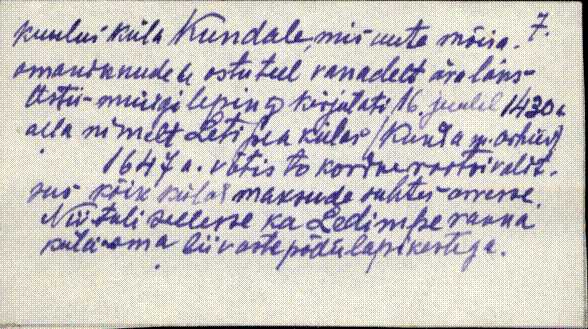 7.
kuulus küla Kundale, mis uute mõisa.
omanikkudele ostuteel vanadelt ära läks-
Ostu-müügi leping kirjutati 16. juulil 1430 a
alla nimelt Letipea külas (Kunda m. arhiiv)
1647 a. võtis to kordne rootsi valit.
sus kõik külad maksude suhtes arvesse.
Nii tuli sellesse ka Ledimpe ranna
küla oma liivaste põdulapikestega.